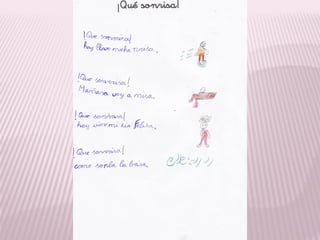 ¡Qué sonrisa!
¡Que sonrisa!
hoy llevo mucha risa.
¡Que sonrisa!
Mañana voy a misa.
¡Que sonrisa!
hoy viene mi tía
¡Que sonrisa!
como sopla la brisa.